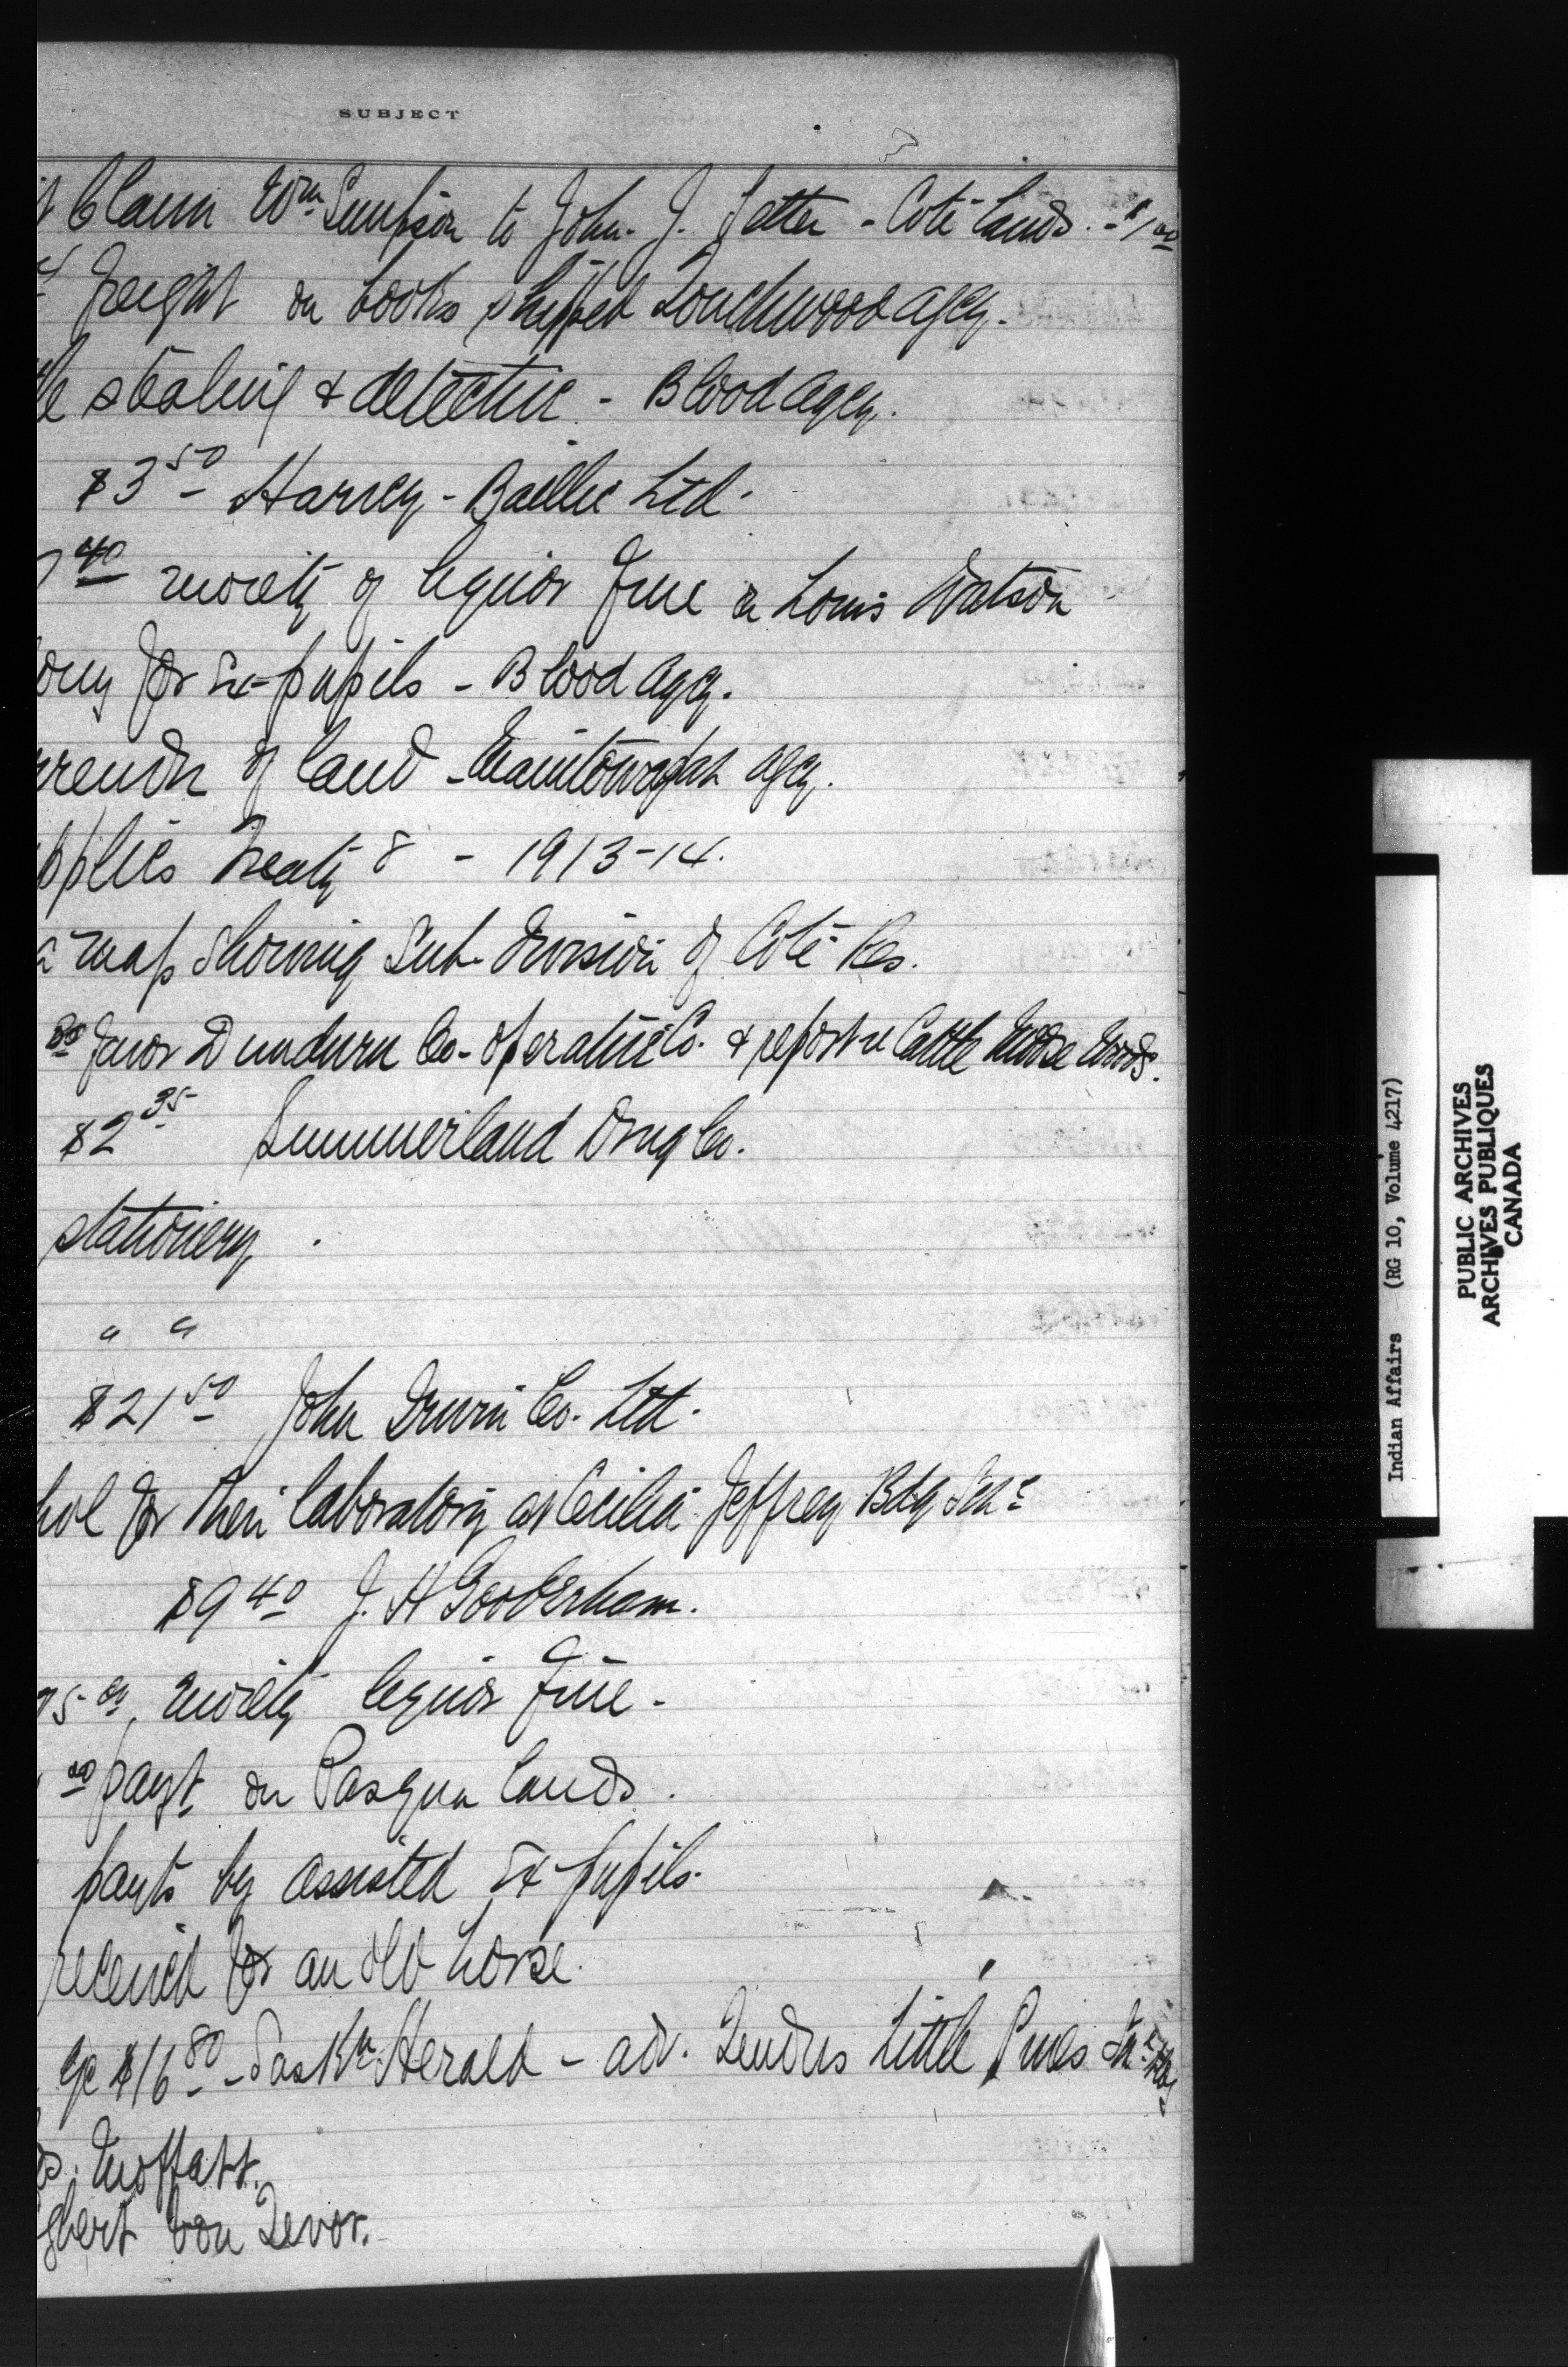 SUBJECT
Claim Wm Simpson to John J. Fetter - Coté lands. - $1.00
freight on books shipped Touchwood agcy.
stealing & detective - Blood agcy.
$3 50 - Harvey - Baillie Ltd.
40 moiety of liquor fine Louis Watson
for Ex-pupils - Blood agcy.
of land - Manitowapah agcy.
Treaty 8 - 1913-14.
map showing Sub-division of Coté Res.
favor Dundurn Co-operative Co. & report re Cattle Moose Woods.
$2 35 Summerland Drug Co.
stationery.
" "
$21 50 John Irwin Co. Ltd.
for their laboratory at Cecilia Jeffrey Bdg Schl
$9 40 J. H Gooderham.
moiety liquor fine -
00 payt. on Pasqua lands.
payts by assisted Ex-pupils.
received for an old horse.
$16 80 - Saskn. Herald - adv. Tenders Little Pines
Moffatt.
von Tevor.
Indian Affairs (RG 10, Volume 4217)
PUBLIC ARCHIVES
ARCHIVES PUBLIQUES
CANADA